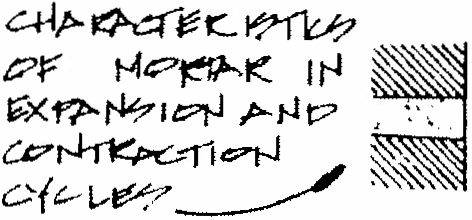 CHARACTERISTICS
OF MORTAR IN
EXPANSION AND
CONTRACTION
CYCLES